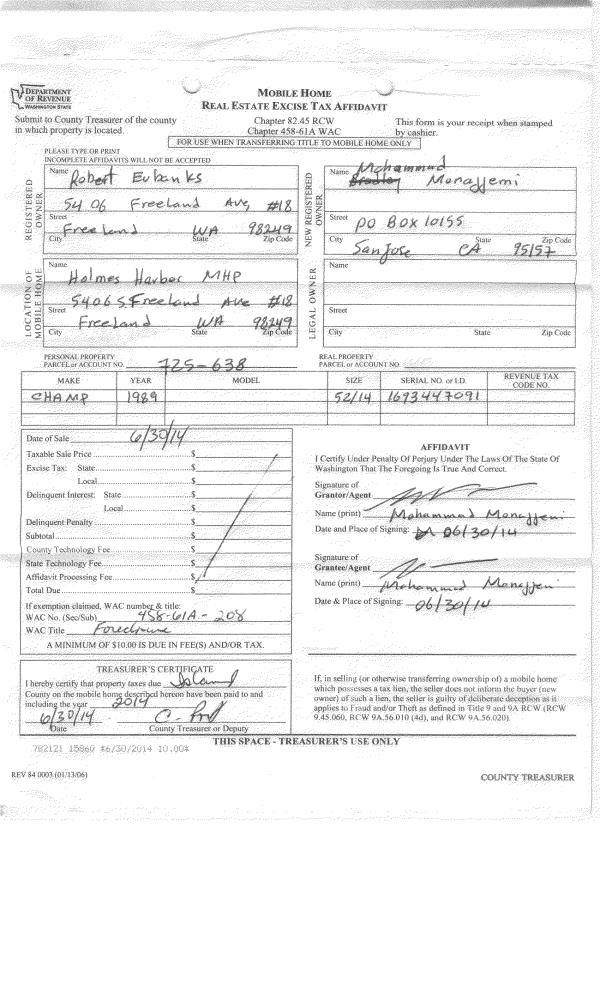 DEPARTMENT
OF REVENUE
WASHINGTON STATE
MOBILE HOME
REAL ESTATE EXCISE TAX AFFIDAVIT
Submit to County Treasurer of the county
in which property is located.
Chapter 82.45 RCW
Chapter 458-61A WAC
This form is your receipt when stamped
by cashier.
FOR USE WHEN TRANSFERRING TITLE TO MOBILE HOME ONLY
PLEASE TYPE OR PRINT
INCOMPLETE AFFIDAVITS WILL NOT BE ACCEPTED
REGISTERED
OWNER
Name Robert Eubanks
5406 Freeland Ave, #18
Street
Freeland WA 98249
City State Zip Code
NEW REGISTERED
OWNER
Name Mohammad
Bradley Monajjemi
Street PO BOX 10155
San Jose CA 95157
City State Zip Code
LOCATION OF
MOBILE HOME
Name
Holmes Harbor MHP
5406 S. Freeland Ave #18
Street
Freeland WA 98249
City State Zip Code
LEGAL OWNER
Name
Street
City State Zip Code
PERSONAL PROPERTY
PARCEL or ACCOUNT NO. 725-638
REAL PROPERTY
PARCEL or ACCOUNT NO.
MAKE YEAR MODEL SIZE SERIAL NO. or I.D. REVENUE TAX
CODE NO.
CHAMP 1989 52/14 1693447091
Date of Sale 6/30/14
Taxable Sale Price $
Excise Tax: State $
Local $
Delinquent Interest: State $
Local $
Delinquent Penalty $
Subtotal $
County Technology Fee $
State Technology Fee $
Affidavit Processing Fee $
Total Due $
If exemption claimed, WAC number & title:
WAC No. (Sec/Sub) 458-61A-208
WAC Title Foreclosure
A MINIMUM OF $10.00 IS DUE IN FEE(S) AND/OR TAX.
AFFIDAVIT
I Certify Under Penalty Of Perjury Under The Laws Of The State Of
Washington That The Foregoing Is True And Correct.
Signature of
Grantor/Agent
Name (print) Mohammad Monajjemi
Date and Place of Signing: 06/30/14
Signature of
Grantee/Agent
Name (print) Mohammad Monajjemi
Date & Place of Signing: 06/30/14
TREASURER'S CERTIFICATE
I hereby certify that property taxes due Island
County on the mobile home described hereon have been paid to and
including the year 2014
6/30/14
Date County Treasurer or Deputy
If, in selling (or otherwise transferring ownership of) a mobile home
which possesses a tax lien, the seller does not inform the buyer (new
owner) of such a lien, the seller is guilty of deliberate deception as it
applies to Fraud and/or Theft as defined in Title 9 and 9A RCW (RCW
9.45.060, RCW 9A.56.010 (4d), and RCW 9A.56.020).
THIS SPACE - TREASURER'S USE ONLY
782121 15860 *6/30/2014 10.00*
REV 84 0003 (01/13/06)
COUNTY TREASURER